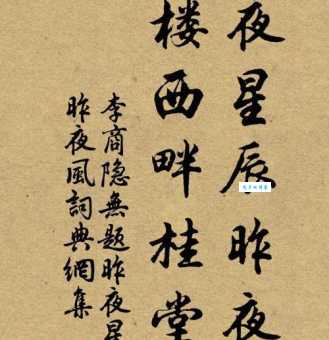 夜星辰昨夜
楼西畔桂堂
李商隐無题昨夜星
昨夜風詞典網集